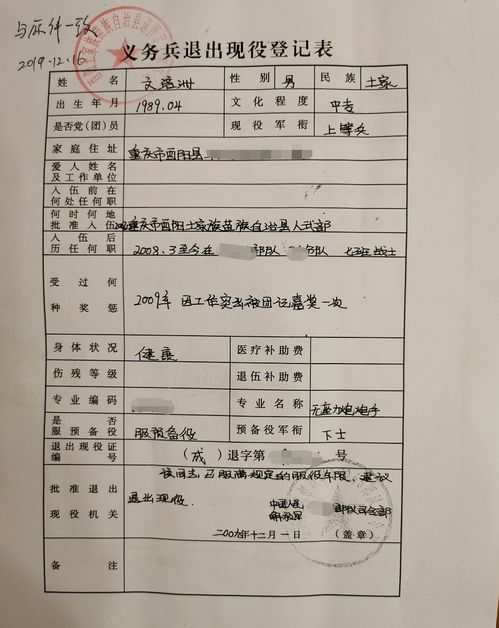 与原件一致
2019.12.16
义务兵退出现役登记表
姓名 文浩洲 性别 男 民族 土家
出生年月 1989.04 文化程度 中专
是否党(团)员 现役军衔 上等兵
家庭住址 重庆市酉阳县
爱人姓名及工作单位
入伍前在何处任何职
何时何地批准入伍 重庆市酉阳土家族苗族自治县人武部
入伍后历任何职 2008.3至今在 部队 分队 七班战士
受过何种奖惩 2009年 因工作突出被团记嘉奖一次
身体状况 健康 医疗补助费
伤残等级 退伍补助费
专业编码 专业名称 无座力炮炮手
是否服预备役 服预备役 预备役军衔 下士
退出现役证编号 (成)退字第 号
批准退出现役机关 该同志已服满规定的服役年限,建议
退出现役. 中国人民解放军 部队司令部
二00九年十二月一日 (盖章)
备注